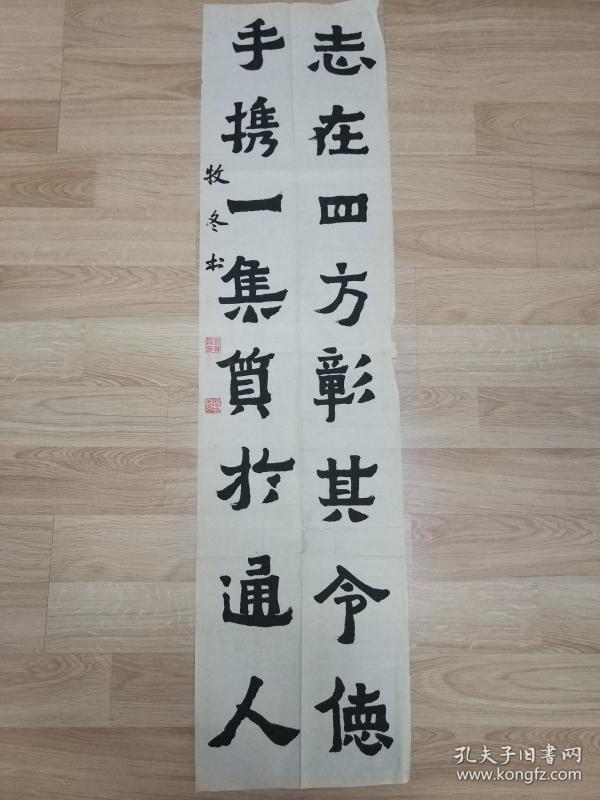 志在四方彰其令德
手携一集質於通人
牧冬书
孔夫子旧书网
www.kongfz.com